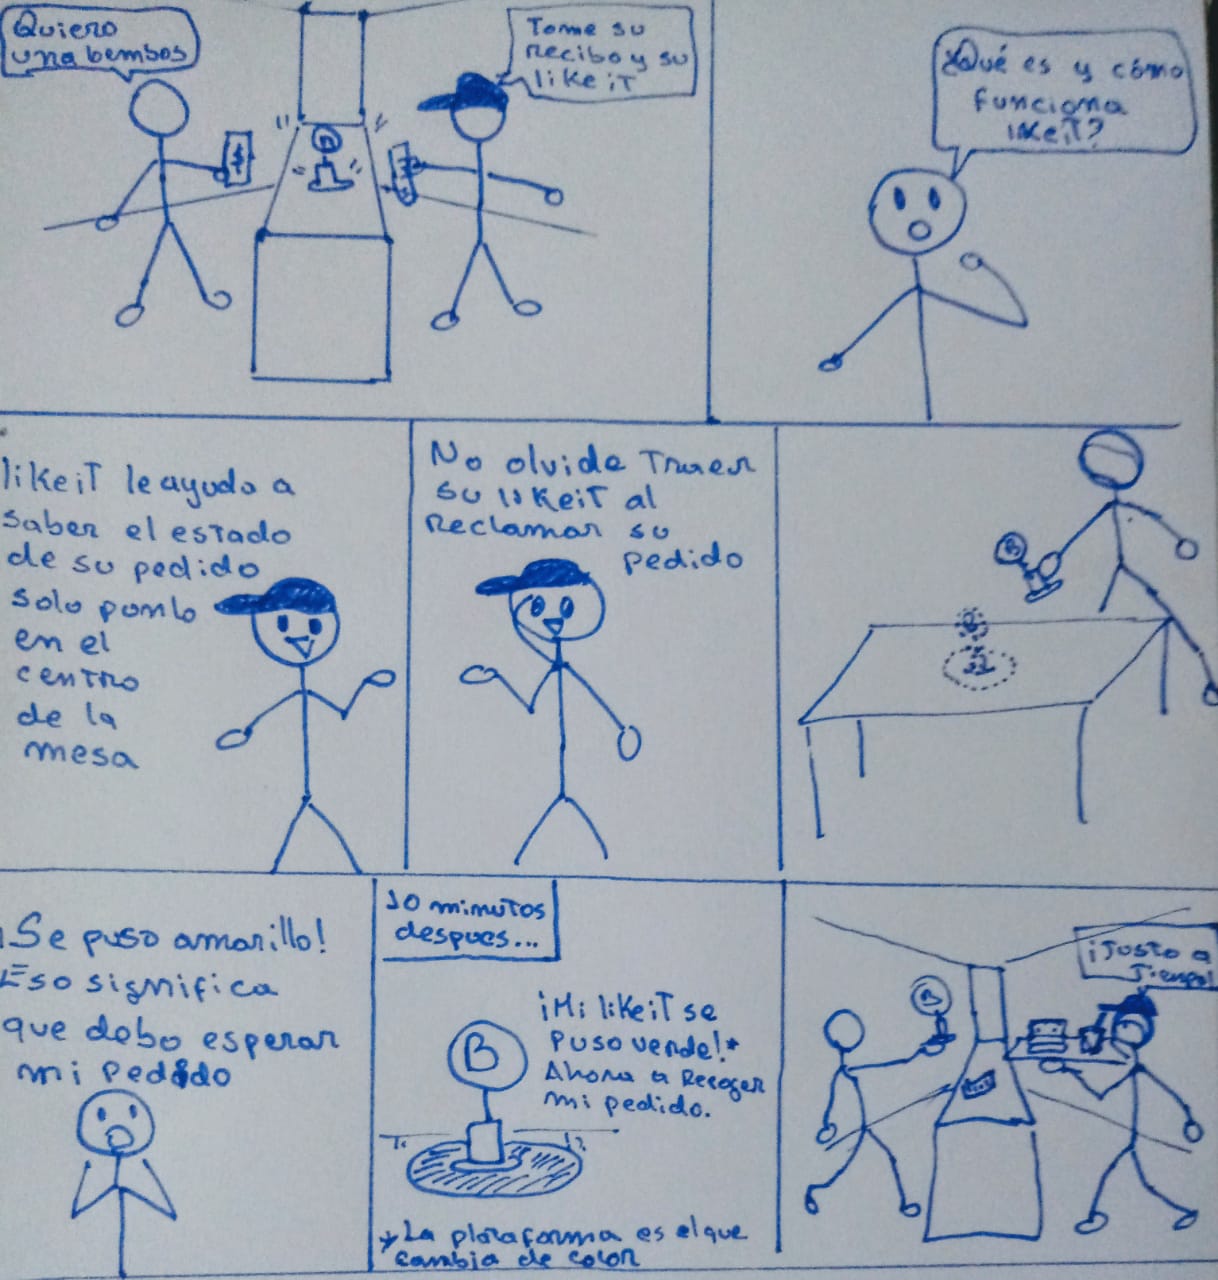 Quiero
una bembos
Tome su
recibo y su
likeiT
$
B
¿Qué es y cómo
funciona
likeiT?
likeiT le ayuda a
saber el estado
de su pedido
solo ponlo
en el
centro
de la
mesa
No olvide Traer
su likeiT al
Reclamar su
pedido
B
¡Se puso amarillo!
Eso significa
que debo esperar
mi pedido
10 minutos
despues...
¡Mi likeiT se
Puso verde!*
Ahora a Recoger
mi pedido.
B
*La plataforma es el que
cambia de color
¡Justo a
Tiempo!
B